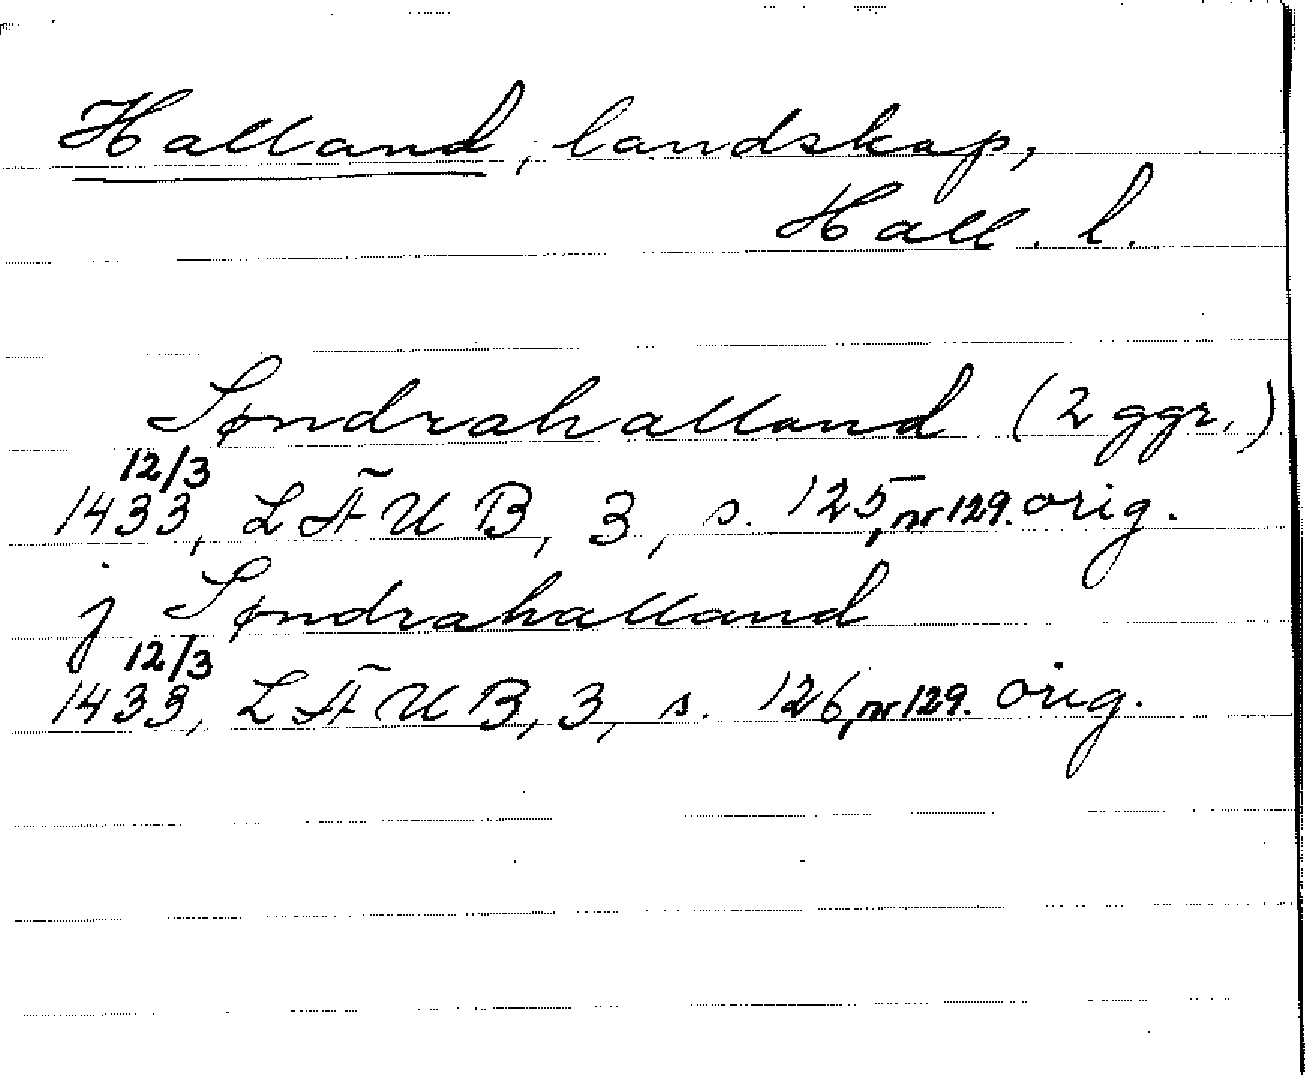 Halland, landskap,
Hall. l.
Søndrahalland (2 ggr.)
12/3
1433, LÄUB, 3, s. 125, nr 129. orig.
j Søndrahalland
12/3
1433, LÄUB, 3, s. 126, nr 129. orig.